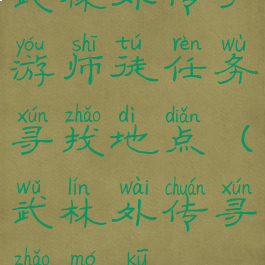 yóu shī tú rèn wù
游师徒任务
xún zhǎo dì diǎn
寻找地点（
wǔ lín wài chuán xún
武林外传寻
zhǎo mó kū